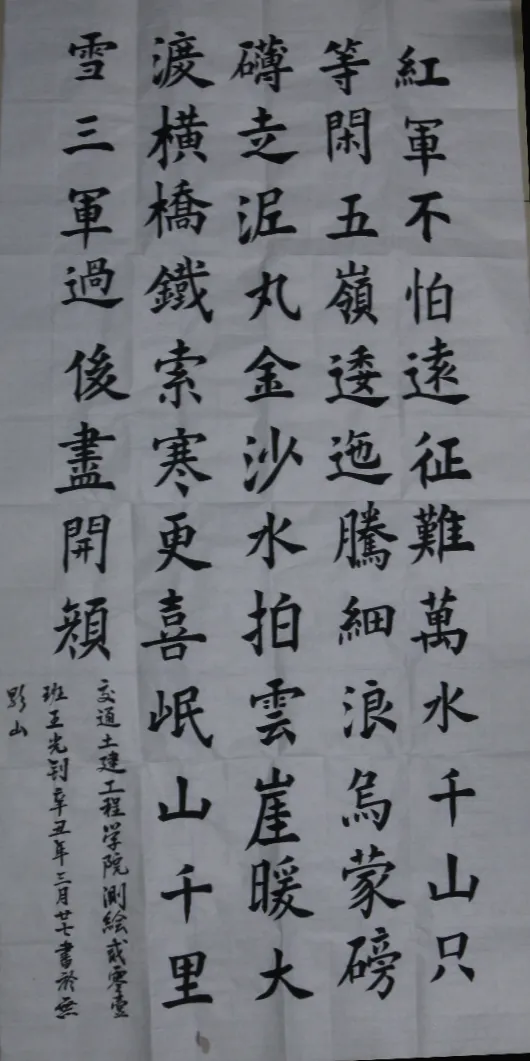 紅軍不怕遠征難萬水千山只
等閑五嶺逶迤騰細浪烏蒙磅
礴走泥丸金沙水拍雲崖暖大
渡橫橋鐵索寒更喜岷山千里
雪三軍過後盡開顏
交通土建工程学院測絵零壹
班王先辛丑年三月廿七書於無
影山